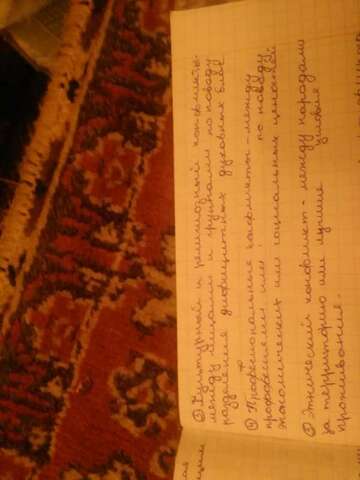 ② Культурный и религиозный конфликты-
между лицами и группами по поводу
разделения дифицитных духовных благ
③ Профессиональные конфликты - между
профессиями по поводу
экономических или социальных ценностей
④ Этнический конфликт - между народами
за территорию или лучшие условия
проживания.